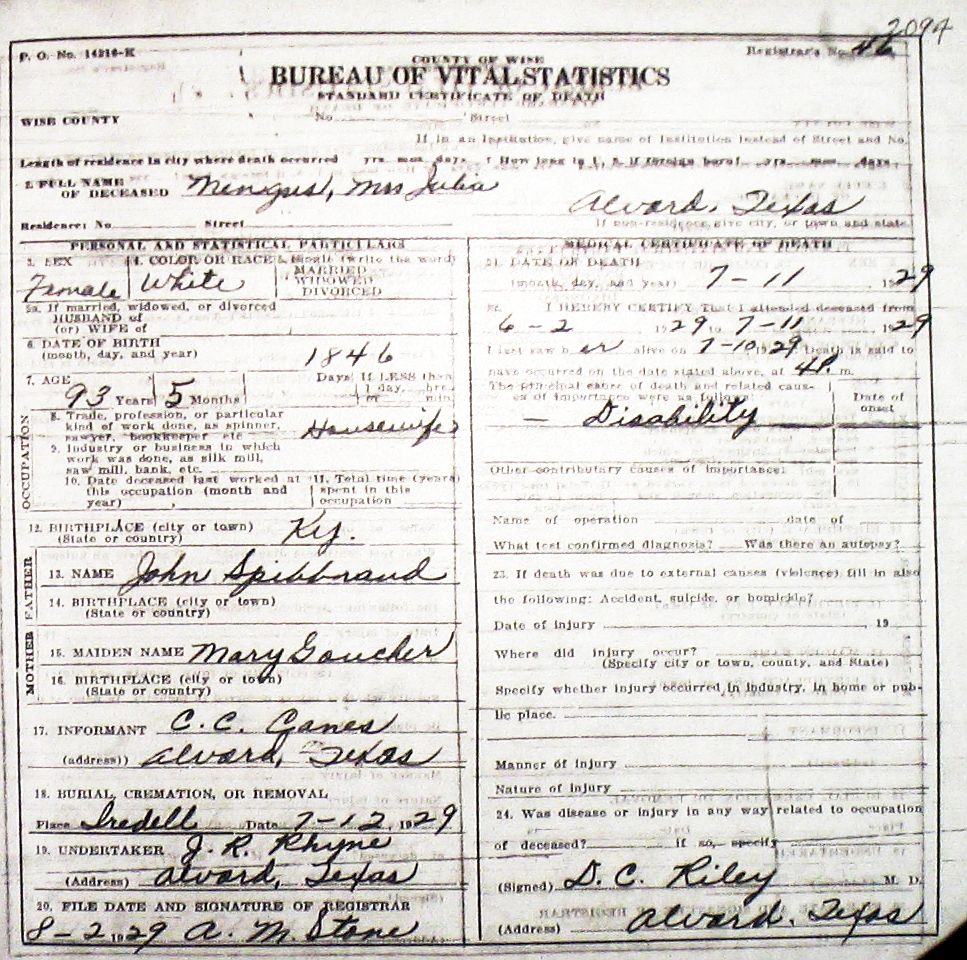 2094
P. O. No. 14216-K
Registrar's No. 46
COUNTY OF WISE
BUREAU OF VITAL STATISTICS
STANDARD CERTIFICATE OF DEATH
WISE COUNTY No. Street
If in an Institution, give name of Institution instead of Street and No.
Length of residence in city where death occurred yrs. mos. days. How long in U. S. if foreign born? yrs. mos. days.
2. FULL NAME OF DECEASED Mrs Julia
Alvord, Texas
Residence: No. Street If non-residence, give city, or town and state.
PERSONAL AND STATISTICAL PARTICULARS
3. SEX 4. COLOR OR RACE (write the word)
MARRIED
WIDOWED
DIVORCED
Female White
5a. If married, widowed, or divorced
HUSBAND of
(or) WIFE of
6. DATE OF BIRTH
(month, day, and year) 1846
7. AGE Days If LESS than
1 day, hrs.
93 Years 5 Months or min.
OCCUPATION
8. Trade, profession, or particular
kind of work done, as spinner,
sawyer, bookkeeper etc Housewife
9. Industry or business in which
work was done, as silk mill,
saw mill, bank, etc.
10. Date deceased last worked at
this occupation (month and
year)
11. Total time (years)
spent in this
occupation
12. BIRTHPLACE (city or town)
(State or country) Ky.
FATHER
13. NAME John
14. BIRTHPLACE (city or town)
(State or country)
MOTHER
15. MAIDEN NAME Mary Goucher
16. BIRTHPLACE (city or town)
(State or country)
17. INFORMANT C. C.
(address) Alvord, Texas
18. BURIAL CREMATION, OR REMOVAL
Place Iredell Date 7-12, 1929
19. UNDERTAKER J. R. Rhyne
(Address) Alvord, Texas
20. FILE DATE AND SIGNATURE OF REGISTRAR
8-2 1929 A. M. Stone
MEDICAL CERTIFICATE OF DEATH
21. DATE OF DEATH
(month, day, and year) 7-11 1929
22. I HEREBY CERTIFY That I attended deceased from
6-2 1929 to 7-11 1929
I last saw her alive on 7-10 1929. Death is said to
have occurred on the date stated above, at 4P. m.
The principal cause of death and related causes of importance were as follows:
Date of onset
— Disability
Other contributory causes of importance:
Name of operation date of
What test confirmed diagnosis? Was there an autopsy?
23. If death was due to external causes (violence) fill in also
the following: Accident, suicide, or homicide?
Date of injury , 19
Where did injury occur?
(Specify city or town, county, and State)
Specify whether injury occurred in industry, in home or pub-
lic place.
Manner of injury
Nature of injury
24. Was disease or injury in any way related to occupation
of deceased? if so, specify
(Signed) D. C. Riley M. D.
(Address) Alvord, Texas